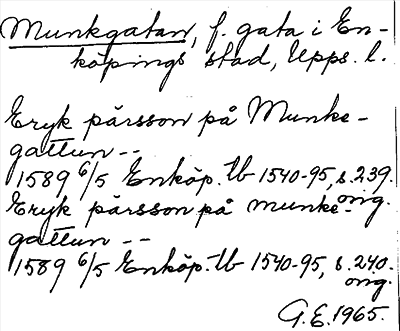 Munkgatan, f. gata i En-
köpings stad, Upps. l.
Eryk pärsson på Munke-
gattun --
1589 6/5 Enköp. tb 1540-95, s. 239.
orig.
Eryk pärsson på munke-
gattun --
1589 6/5 Enköp. tb 1540-95, s. 240.
orig.
G.E. 1965.